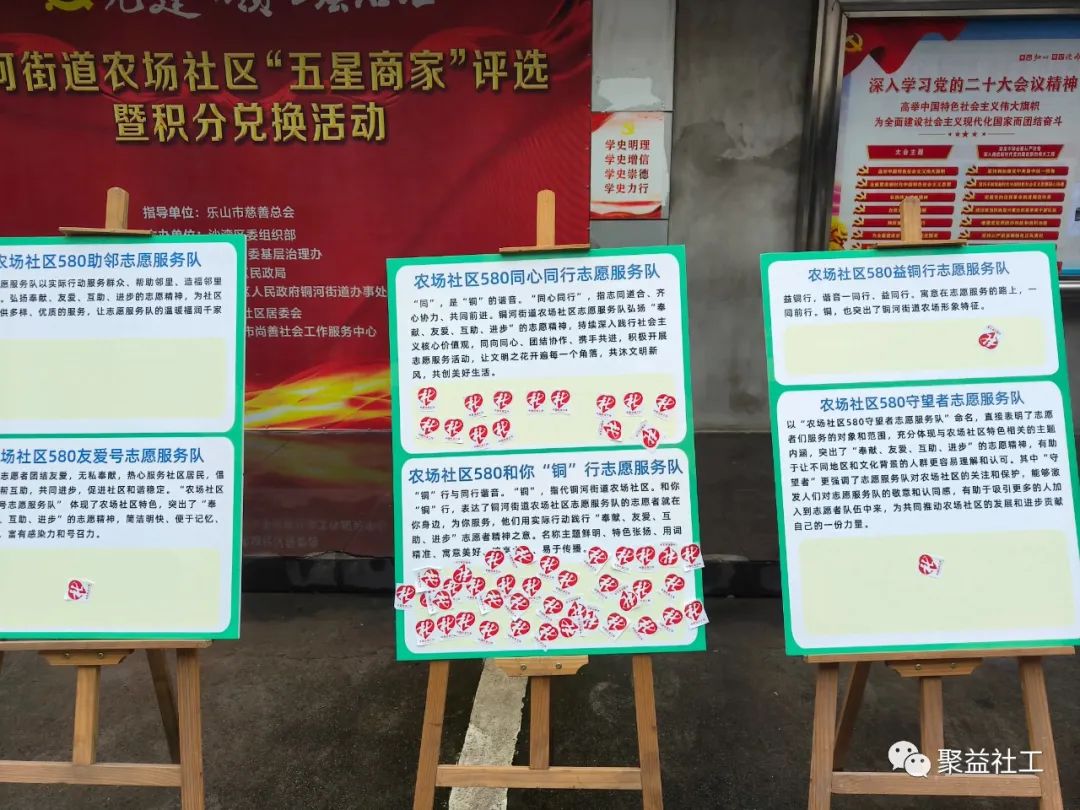 河街道农场社区“五星商家”评选
暨积分兑换活动
指导单位：乐山市慈善总会
沙湾区委组织部
委基层治理办
民政局
区人民政府铜河街道办事处
社区居委会
市尚善社会工作服务中心
学史明理
学史增信
学史崇德
学史力行
深入学习党的二十大会议精神
高举中国特色社会主义伟大旗帜
为全面建设社会主义现代化国家而团结奋斗
大会主题
农场社区580助邻志愿服务队
愿服务队以实际行动服务群众、帮助邻里、造福邻里
。弘扬奉献、友爱、互助、进步的志愿精神，为社区
供多样、优质的服务，让志愿服务队的温暖福润千家
场社区580友爱号志愿服务队
志愿者团结友爱，无私奉献，热心服务社区居民，倡
帮互助，共同进步，促进社区和谐稳定。“农场社区
号志愿服务队”体现了农场社区特色，突出了“奉
、互助、进步”的志愿精神，简洁明快，便于记忆、
富有感染力和号召力。
农场社区580同心同行志愿服务队
“同”，是“铜”的谐音。“同心同行”，指志同道合、齐
心协力、共同前进。铜河街道农场社区志愿服务队弘扬“奉
献、友爱、互助、进步”的志愿精神，持续深入践行社会主
义核心价值观，同向同心、团结协作、携手共进，积极开展
志愿服务活动，让文明之花开遍每一个角落，共沐文明新
风，共创美好生活。
农场社区580和你“铜”行志愿服务队
“铜”行与同行谐音。“铜”，指代铜河街道农场社区。和你
“铜”行，表达了铜河街道农场社区志愿服务队的志愿者就在
你身边，为你服务，他们用实际行动践行“奉献、友爱、互
助、进步”志愿者精神之意。名称主题鲜明、特色张扬、用词
精准、寓意美好、易于传播。
农场社区580益铜行志愿服务队
益铜行，谐音一同行、益同行。寓意在志愿服务的路上，一
同前行。铜，也突出了铜河街道农场形象特征。
农场社区580守望者志愿服务队
以“农场社区580守望者志愿服务队”命名，直接表明了志愿
者们服务的对象和范围，充分体现与农场社区特色相关的主题
内涵，突出了“奉献、友爱、互助、进步”的志愿精神，有助
于让不同地区和文化背景的人群更容易理解和认可。其中“守
望者”更强调了志愿服务队对农场社区的关注和保护，能够激
发人们对志愿服务队的敬意和认同感，有助于吸引更多的人加
入到志愿者队伍中来，为共同推动农场社区的发展和进步贡献
自己的一份力量。
聚益社工